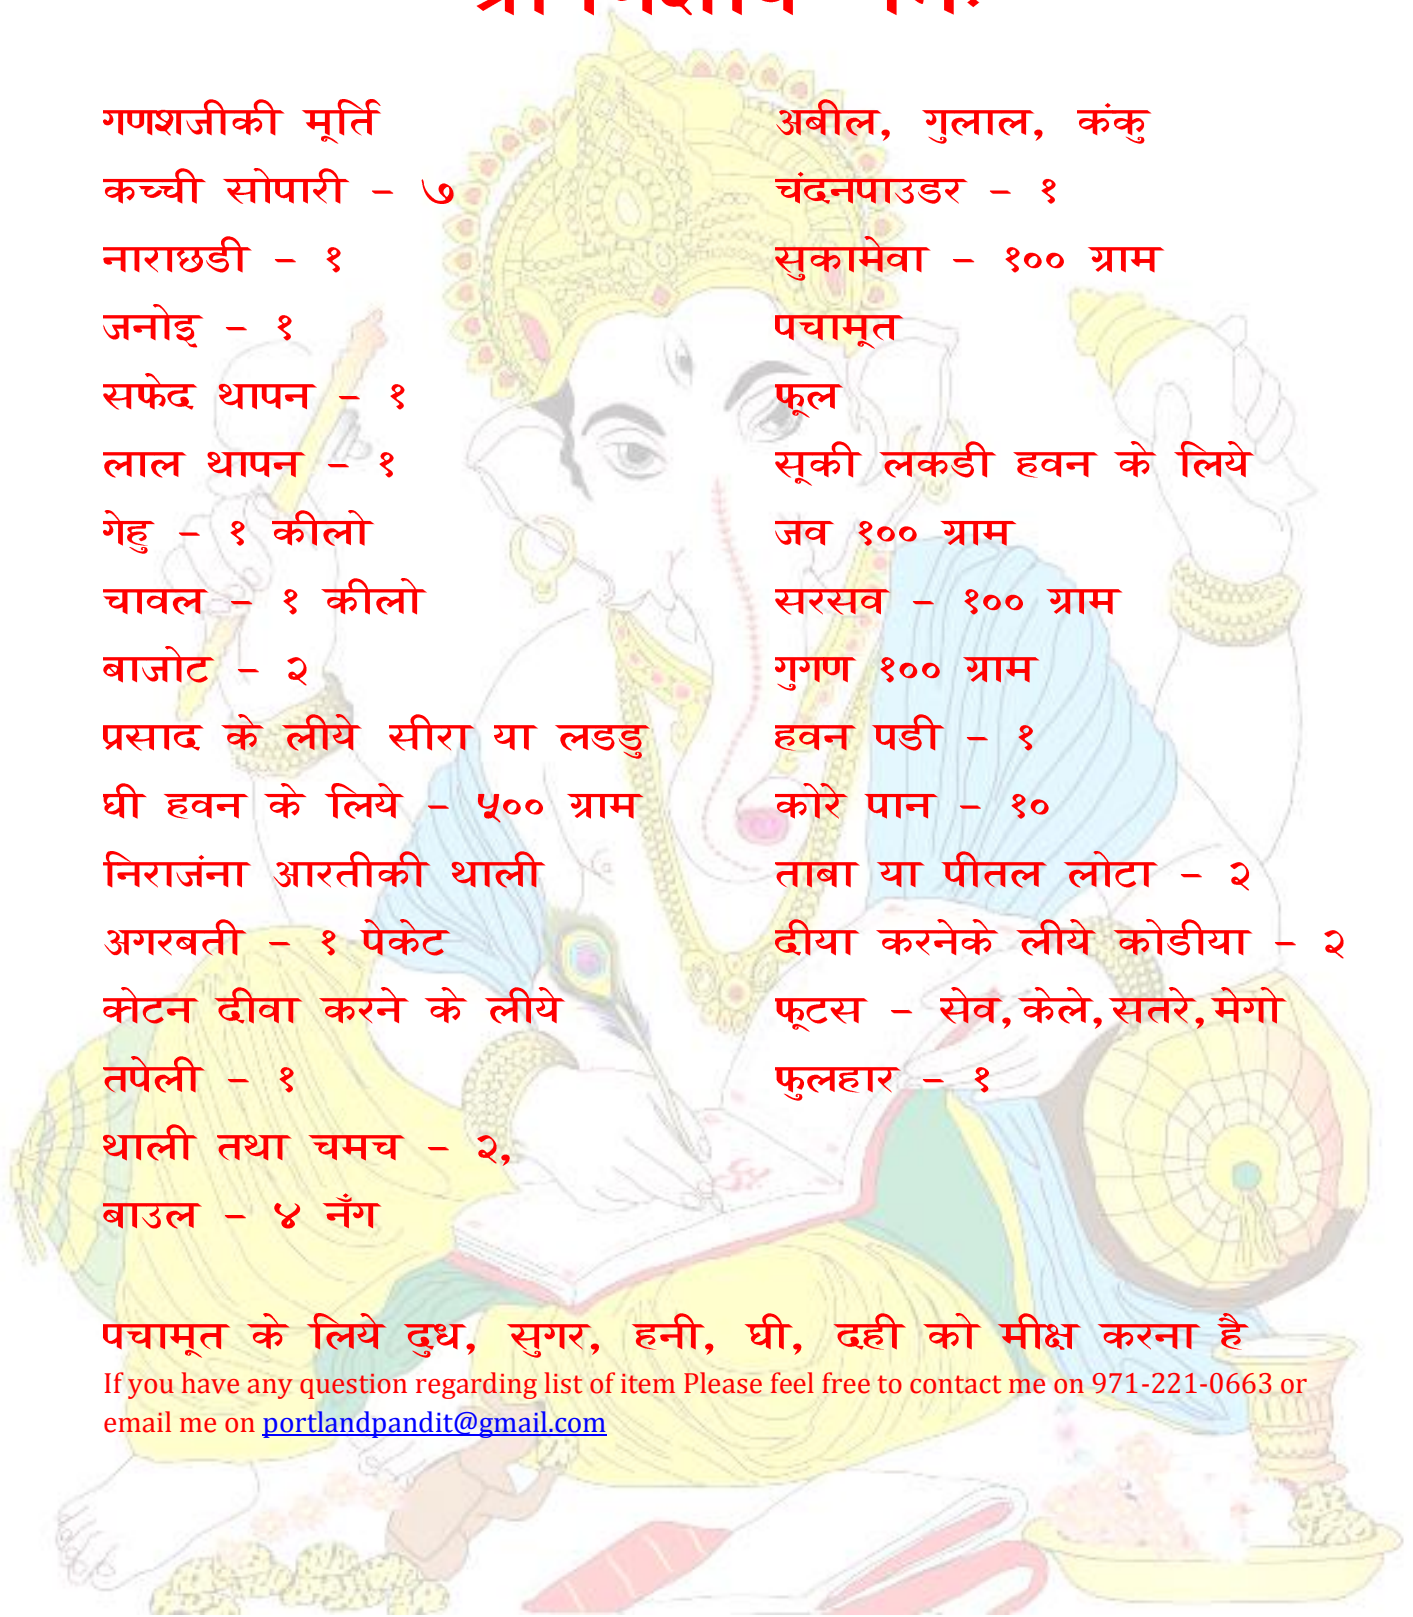 गणशजीकी मूर्ति
कच्ची सोपारी – ७
नाराछडी – १
जनोइ – १
सफेद थापन – १
लाल थापन – १
गेहु – १ कीलो
चावल – १ कीलो
बाजोट – २
प्रसाद के लीये सीरा या लडडु
घी हवन के लिये – ५०० ग्राम
निराजंना आरतीकी थाली
अगरबती – १ पेकेट
कोटन दीवा करने के लीये
तपेली – १
थाली तथा चमच – २,
बाउल – ४ नँग
अबील, गुलाल, कंकु
चंदनपाउडर – १
सुकामेवा – १०० ग्राम
पचामृत
फूल
सूकी लकडी हवन के लिये
जव १०० ग्राम
सरसव – १०० ग्राम
गुगण १०० ग्राम
हवन पडी – १
कोरे पान – १०
ताबा या पीतल लोटा – २
दीया करनेके लीये कोडीया – २
फूटस – सेव,केले,सतरे,मेगो
फुलहार – १
पचामृत के लिये दुध, सुगर, हनी, घी, दही को मीक्ष करना है
If you have any question regarding list of item Please feel free to contact me on 971-221-0663 or
email me on portlandpandit@gmail.com